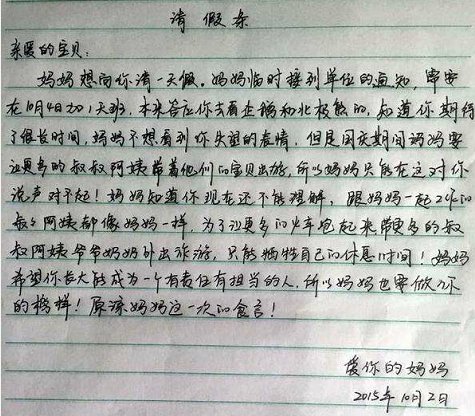 请假条
亲爱的宝贝：
妈妈想向你请一天假。妈妈临时接到单位的通知，需要
在10月4日加1天班，本来答应你去看企鹅和北极熊的，知道你期待
了很长时间，妈妈不想看到你失望的表情，但是国庆期间妈妈要
让更多的叔叔阿姨带着他们的宝贝出游，所以妈妈只能在这对你
说声对不起！妈妈知道你现在还不能理解，跟妈妈一起工作的
叔叔阿姨都像妈妈一样，为了让更多的火车跑起来带更多的叔
叔阿姨爷爷奶奶外出旅游，只能牺牲自己的休息时间！妈妈
希望你长大能成为一个有责任有担当的人，所以妈妈也要做你
的榜样！原谅妈妈这一次的食言！
爱你的妈妈
2015年10月2日